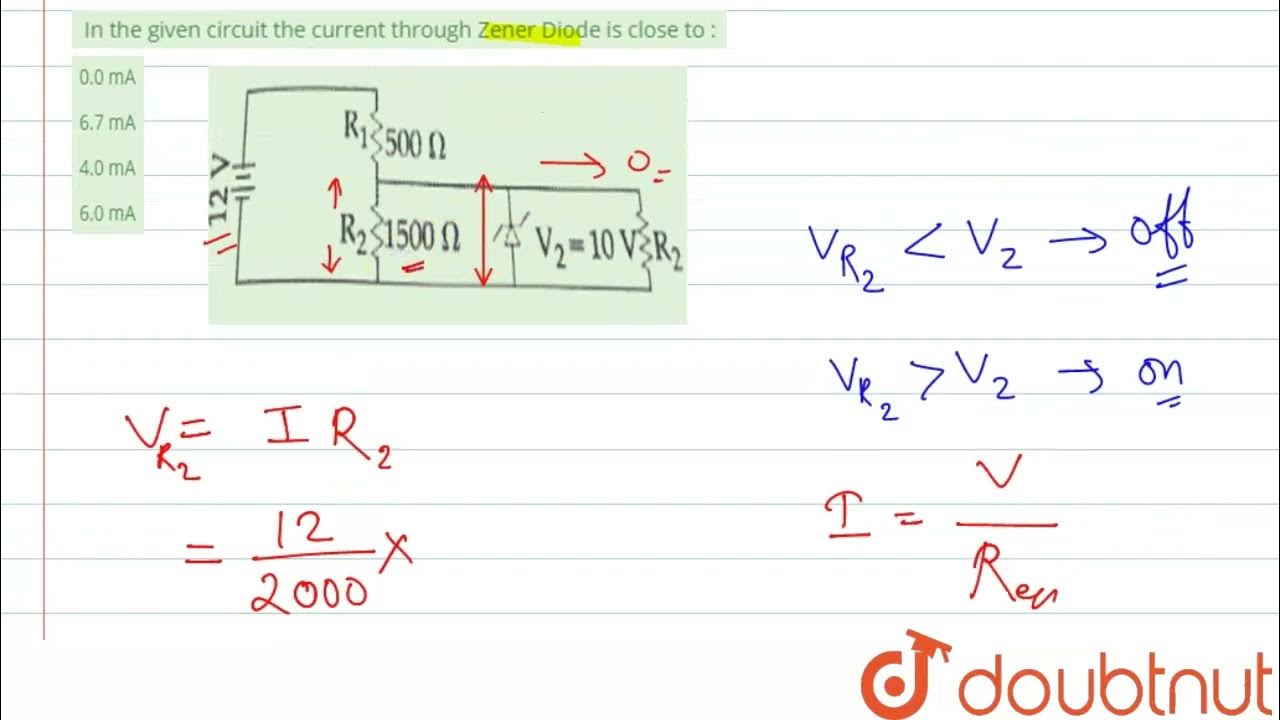 In the given circuit the current through Zener Diode is close to :
0.0 mA
6.7 mA
4.0 mA
6.0 mA
12 V
R₁ 500 Ω
R₂ 1500 Ω
V₂ = 10 V
R₂
0
V_R₂ < V₂ → off
V_R₂ > V₂ → on
V_R₂ = I R₂
= 12/2000 ×
I = V/R_eq
doubtnut